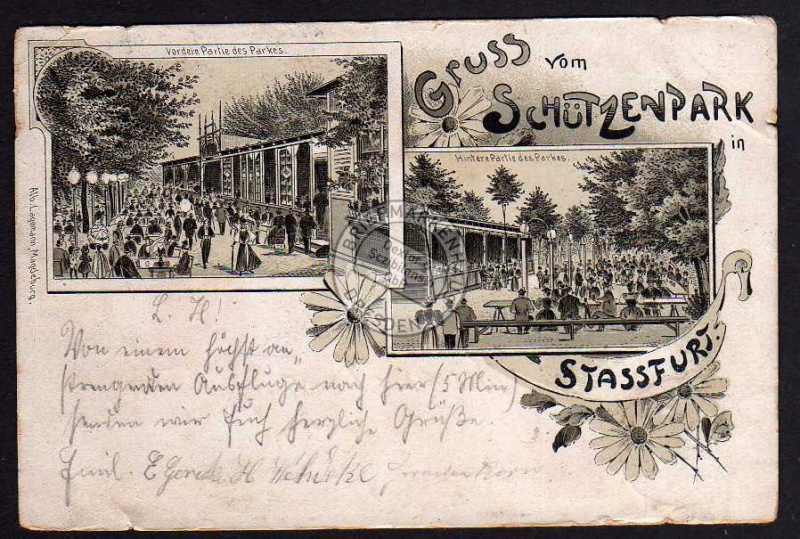 Vordere Partie des Parkes.
Gruss vom
Schützenpark
in
Hintere Partie des Parkes.
Stassfurt.
Magdeburg.
BRIEFMARKENHAUS
DRESDEN
L. H!
Von einem höchst an-
strengenden Ausfluge nach hier (5 Min)
senden wir Euch herzliche Grüße.
Emil.